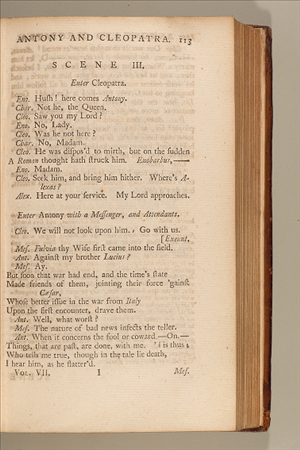 ANTONY AND CLEOPATRA. 113
SCENE III.
Enter Cleopatra.
Eno. Hush! here comes Antony.
Char. Not he, the Queen.
Cleo. Saw you my Lord?
Eno. No, Lady.
Cleo. Was he not here?
Char. No, Madam.
Cleo. He was dispos'd to mirth, but on the sudden
A Roman thought hath struck him. Enobarbus,—
Eno. Madam.
Cleo. Seek him, and bring him hither. Where's A-
lexas?
Alex. Here at your service. My Lord approaches.
Enter Antony with a Messenger, and Attendants.
Cleo. We will not look upon him. Go with us.
[Exeunt.
Mes. Fulvia thy Wife first came into the field.
Ant. Against my brother Lucius?
Mes. Ay.
But soon that war had end, and the time's state
Made friends of them, jointing their force 'gainst
Cæsar,
Whose better issue in the war from Italy
Upon the first encounter, drave them.
Ant. Well, what worst?
Mes. The nature of bad news infects the teller.
Ant. When it concerns the fool or coward.—On.—
Things, that are past, are done, with me. 'Tis thus;
Who tells me true, though in the tale lie death,
I hear him, as he flatter'd.
VOL. VII. I Mes.